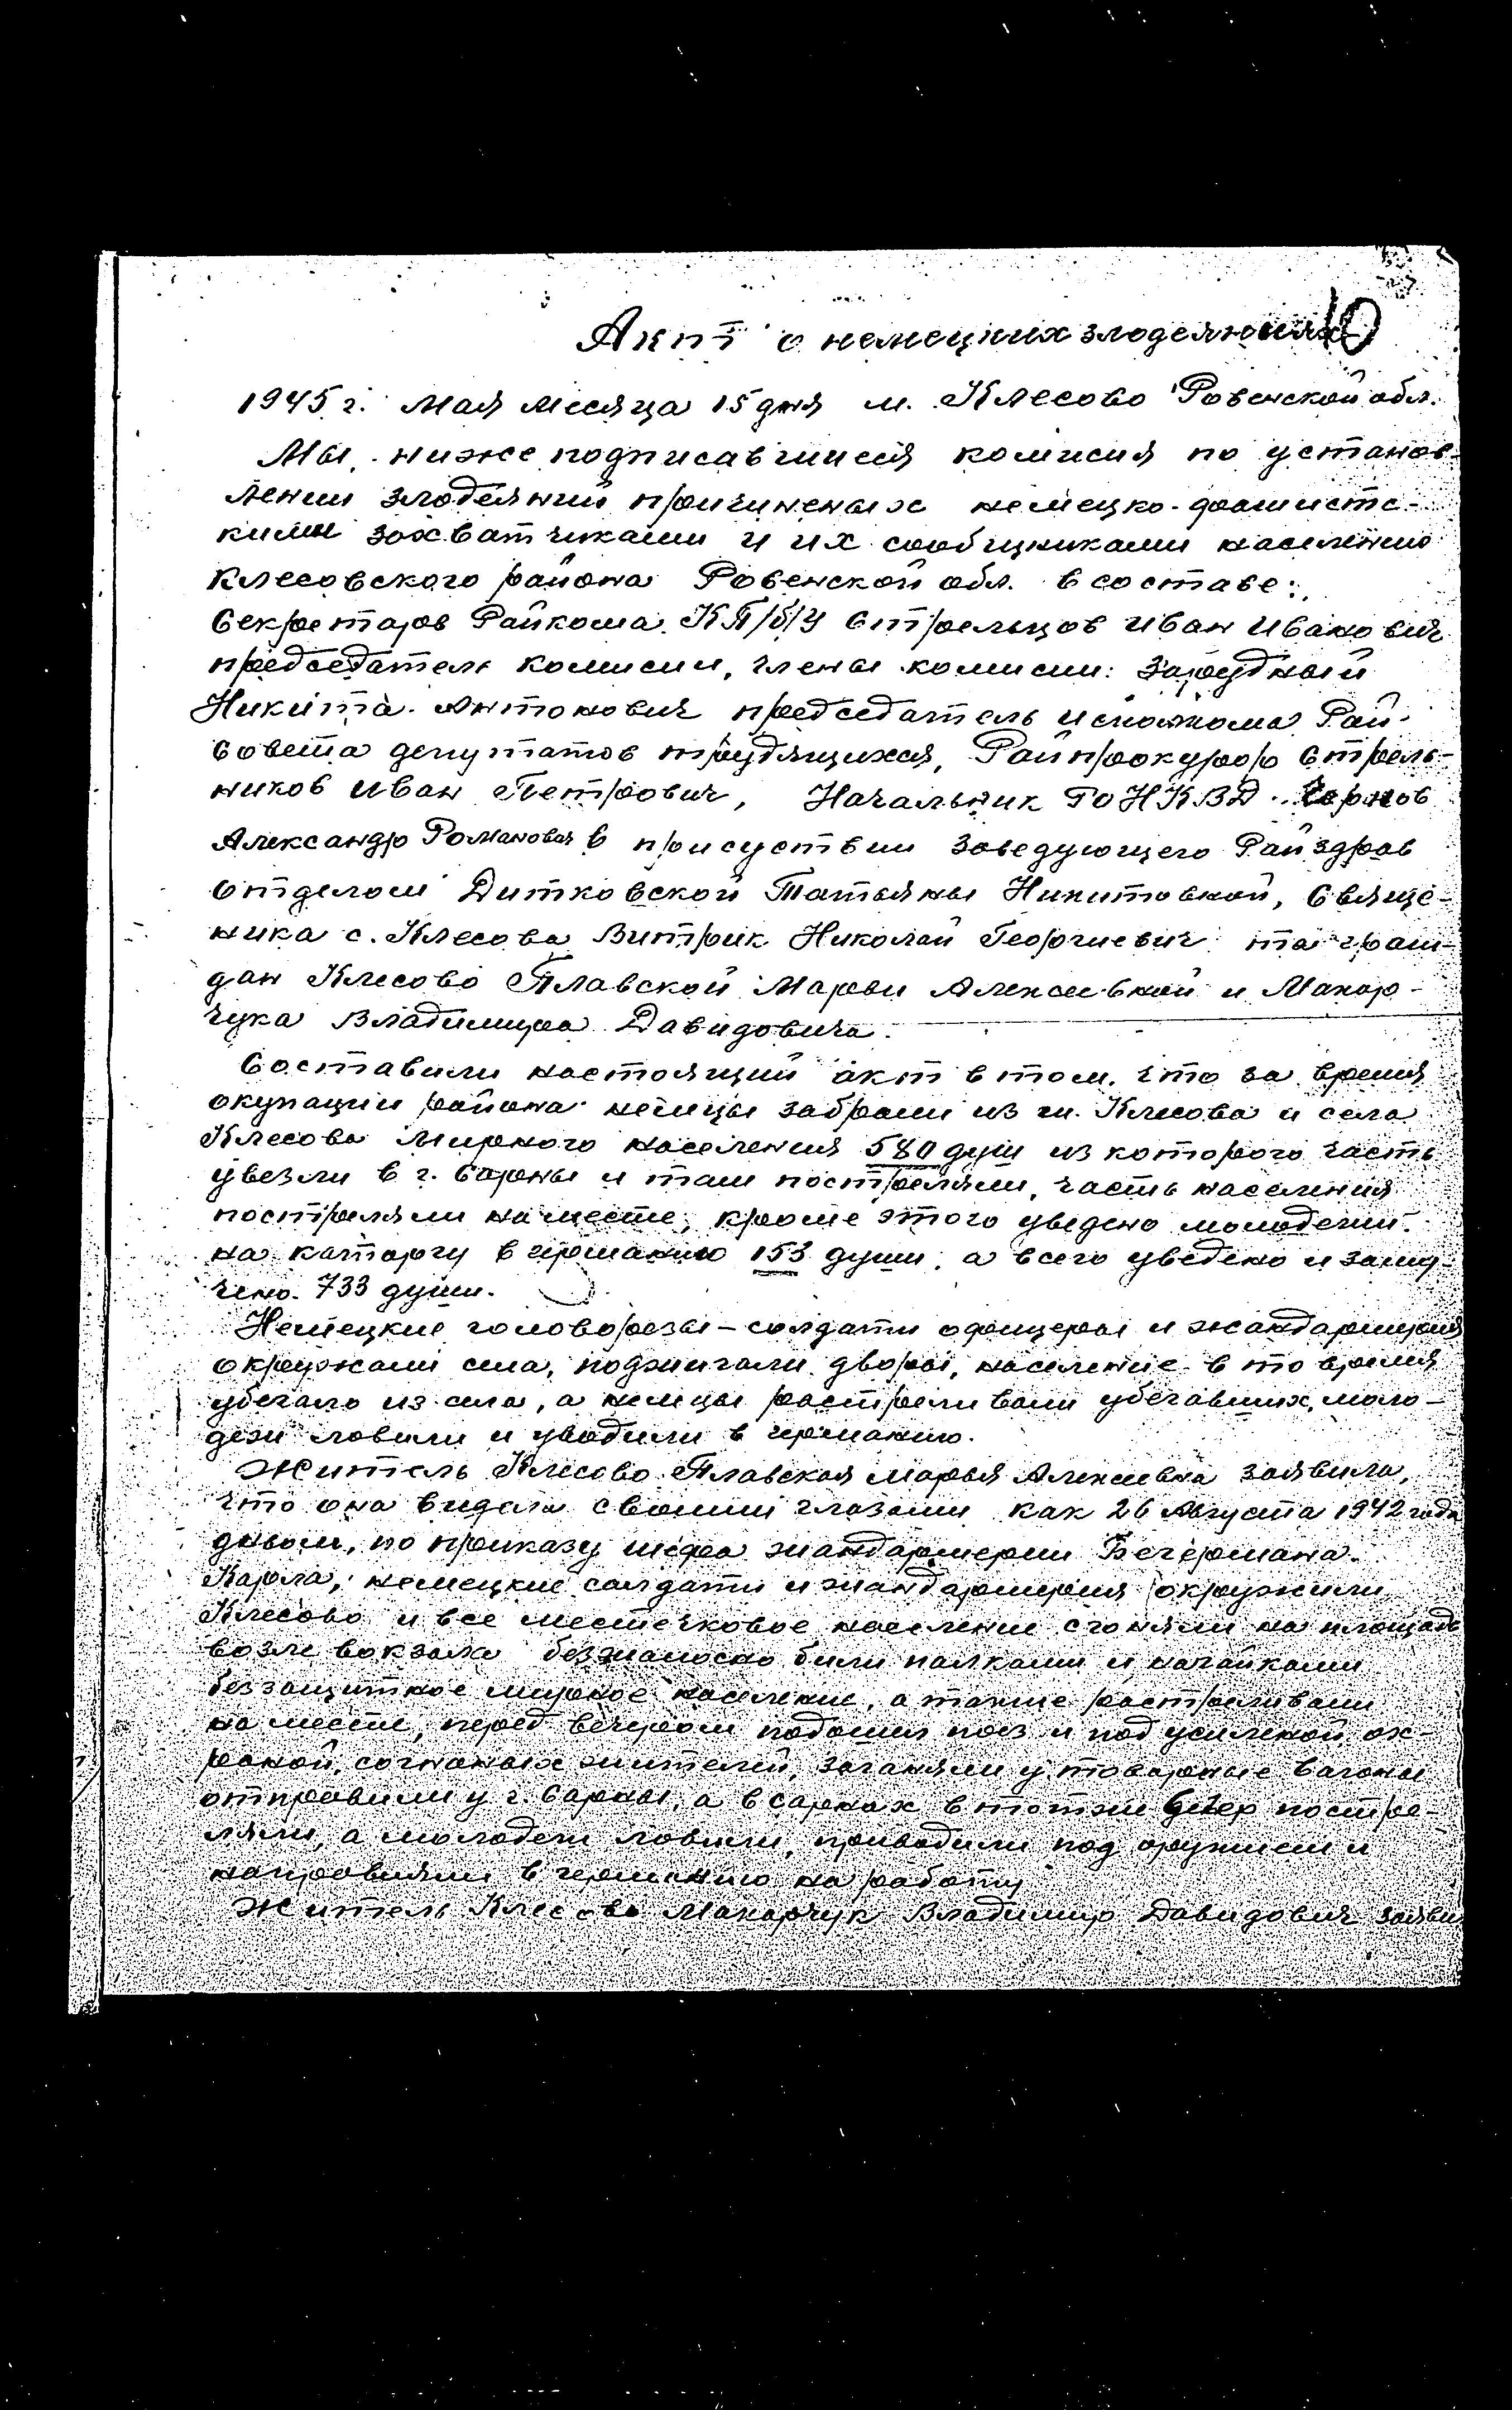 Акт о немецких злодеяниях
10
1945 г. Мая месяца 15 дня м. Клесово Ровенской обл.
Мы, ниже подписавшиеся комисия по установ-
лении злодеяний причиненых немецко-фашистс-
кими захватчиками и их сообщниками населению
Клесовского района Ровенской обл. в составе:
Секретаров Райкома КП/б/У Стрельцов Иван Иванович
председатель комисии, члены комисии: Зарудный
Никита Антонович председатель исполкома Рай-
совета депутатов трудящихся, Райпрокурор Стрель-
ников Иван Петрович, Начальник ГоНКВД Чернов
Александр Романович в присуствии заведующего Райздрав
отделом Дитковской Татьяны Никитовной, Свяще-
ника с. Клесова Витрик Николай Георгиевич та граж-
дан Клесово Плавской Марьи Алексеевной и Макар-
чука Владимира Давидовича.
Составили настоящий акт в том, что за время
окупации района немцы забрали из м. Клесова и села
Клесова мирного населения 580 душ из которого часть
увезли в г. Сарны и там постреляли, часть населения
постреляли на месте, кроме этого уведено молодежи
на каторгу в германию 153 души, а всего уведено и заму-
чено 733 души.
Немецкие головорезы – солдати офицеры и жандармерия
окружали села, поджигали дворы, население в то время
убегало из села, а немцы растреливали убегавших, моло-
дежи ловили и уводили в германию.
Житель Клесово Плавская Марья Алексеевна заявила,
что она видела своими глазами как 26 Августа 1942 года
дньом, по приказу шефа жандармерии Бечермана
Карла, немецкие салдати и жандармерия окружили
Клесово и все местечковое население сгоняли на площадь
возле вокзала безжалосно били палками и нагайками
беззащитное мирное население, а также растреливали
на месте, перед вечером подошел поез и под усиленой ох-
раной, согнаных жителей, заганяли у товарные вагоны
отправили у г. Сарны, а в сарнах в тотже вечер постре-
ляли, а молодежи ловили, приводили под оружием и
направляли в германию на работу
Житель Клесово Макарчук Владимир Давидович заяви